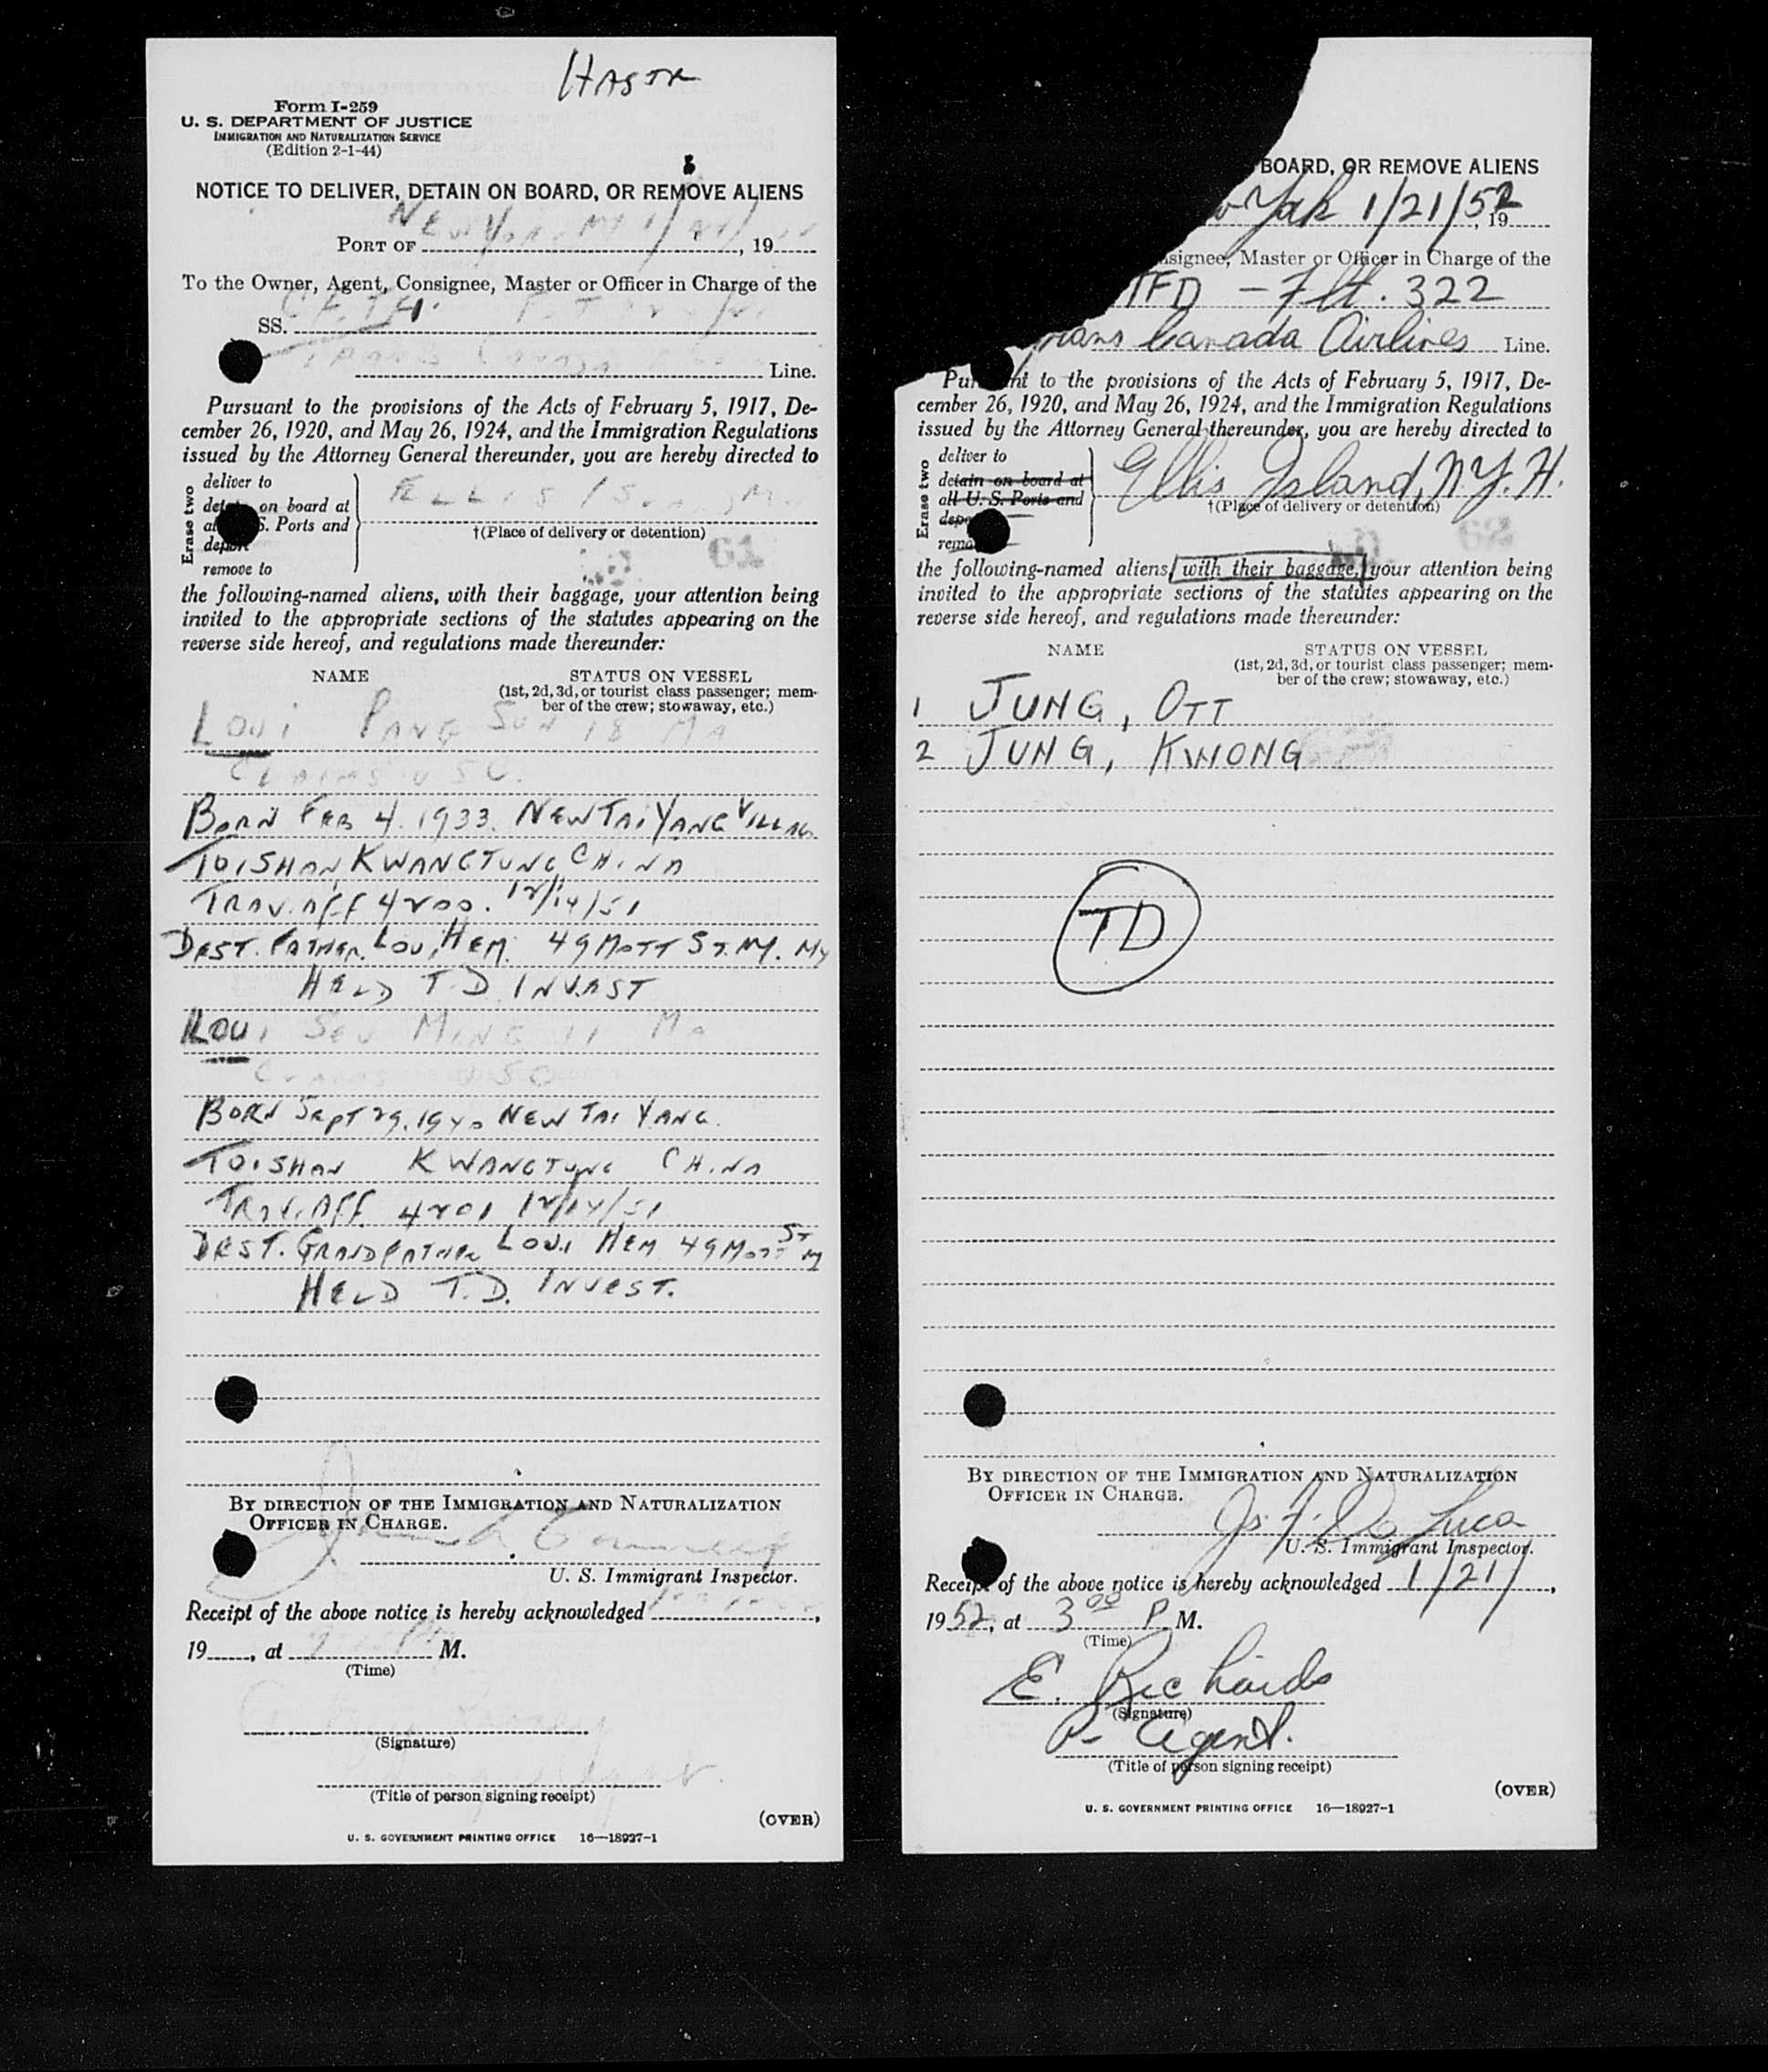 HASTR
Form I-259
U. S. DEPARTMENT OF JUSTICE
IMMIGRATION AND NATURALIZATION SERVICE
(Edition 2-1-44)
NOTICE TO DELIVER, DETAIN ON BOARD, OR REMOVE ALIENS
NEW YORK NY 1/
PORT OF , 19
To the Owner, Agent, Consignee, Master or Officer in Charge of the
SS.
TRANS CANADA
Line.
Pursuant to the provisions of the Acts of February 5, 1917, De-
cember 26, 1920, and May 26, 1924, and the Immigration Regulations
issued by the Attorney General thereunder, you are hereby directed to
Erase two
deliver to
on board at
S. Ports and
deport
remove to
ELLIS IS
†(Place of delivery or detention)
61
the following-named aliens, with their baggage, your attention being
invited to the appropriate sections of the statutes appearing on the
reverse side hereof, and regulations made thereunder:
NAME STATUS ON VESSEL
(1st, 2d, 3d, or tourist class passenger; mem-
ber of the crew; stowaway, etc.)
LOUI PANG SUN 18 MA
CLAIMS USC.
BORN FEB 4. 1933. NEW TAI YANG VILLAG
TOISHAN KWANGTUNG CHINA
TRAV. AFF 4200. 12/14/51
DEST. FATHER. LOUI HEM. 49 MOTT ST. NY. NY
HELD T.D INVEST
LOUI SEU MING 11 MA
CLAIMS USC
BORN SEPT 29. 1940 NEW TAI YANG.
TOISHAN KWANGTUNG CHINA
TRAV. AFF 4201 12/14/51
DEST. GRANDFATHER LOUI HEM 49 MOTT ST NY
HELD T.D. INVEST.
BY DIRECTION OF THE IMMIGRATION AND NATURALIZATION
OFFICER IN CHARGE.
U. S. Immigrant Inspector.
Receipt of the above notice is hereby acknowledged ,
19 , at M.
(Time)
(Signature)
(Title of person signing receipt)
(OVER)
U. S. GOVERNMENT PRINTING OFFICE 16—18927-1
BOARD, OR REMOVE ALIENS
York 1/21/52
, 19
nsignee, Master or Officer in Charge of the
TFD - Flt. 322
rans Canada Airlines Line.
Pur nt to the provisions of the Acts of February 5, 1917, De-
cember 26, 1920, and May 26, 1924, and the Immigration Regulations
issued by the Attorney General thereunder, you are hereby directed to
Erase two
deliver to
detain on board at
all U. S. Ports and
depo
remo
Ellis Island, N.Y.H.
†(Place of delivery or detention)
62
the following-named aliens, with their baggage, your attention being
invited to the appropriate sections of the statutes appearing on the
reverse side hereof, and regulations made thereunder:
NAME STATUS ON VESSEL
(1st, 2d, 3d, or tourist class passenger; mem-
ber of the crew; stowaway, etc.)
1 JUNG, OTT
2 JUNG, KWONG
TD
BY DIRECTION OF THE IMMIGRATION AND NATURALIZATION
OFFICER IN CHARGE.
Js. F. De Luca
U. S. Immigrant Inspector.
Receipt of the above notice is hereby acknowledged 1/21/ ,
1952, at 3 00 P M.
(Time)
E. Richards
(Signature)
P- Agent.
(Title of person signing receipt)
(OVER)
U. S. GOVERNMENT PRINTING OFFICE 16—18927-1